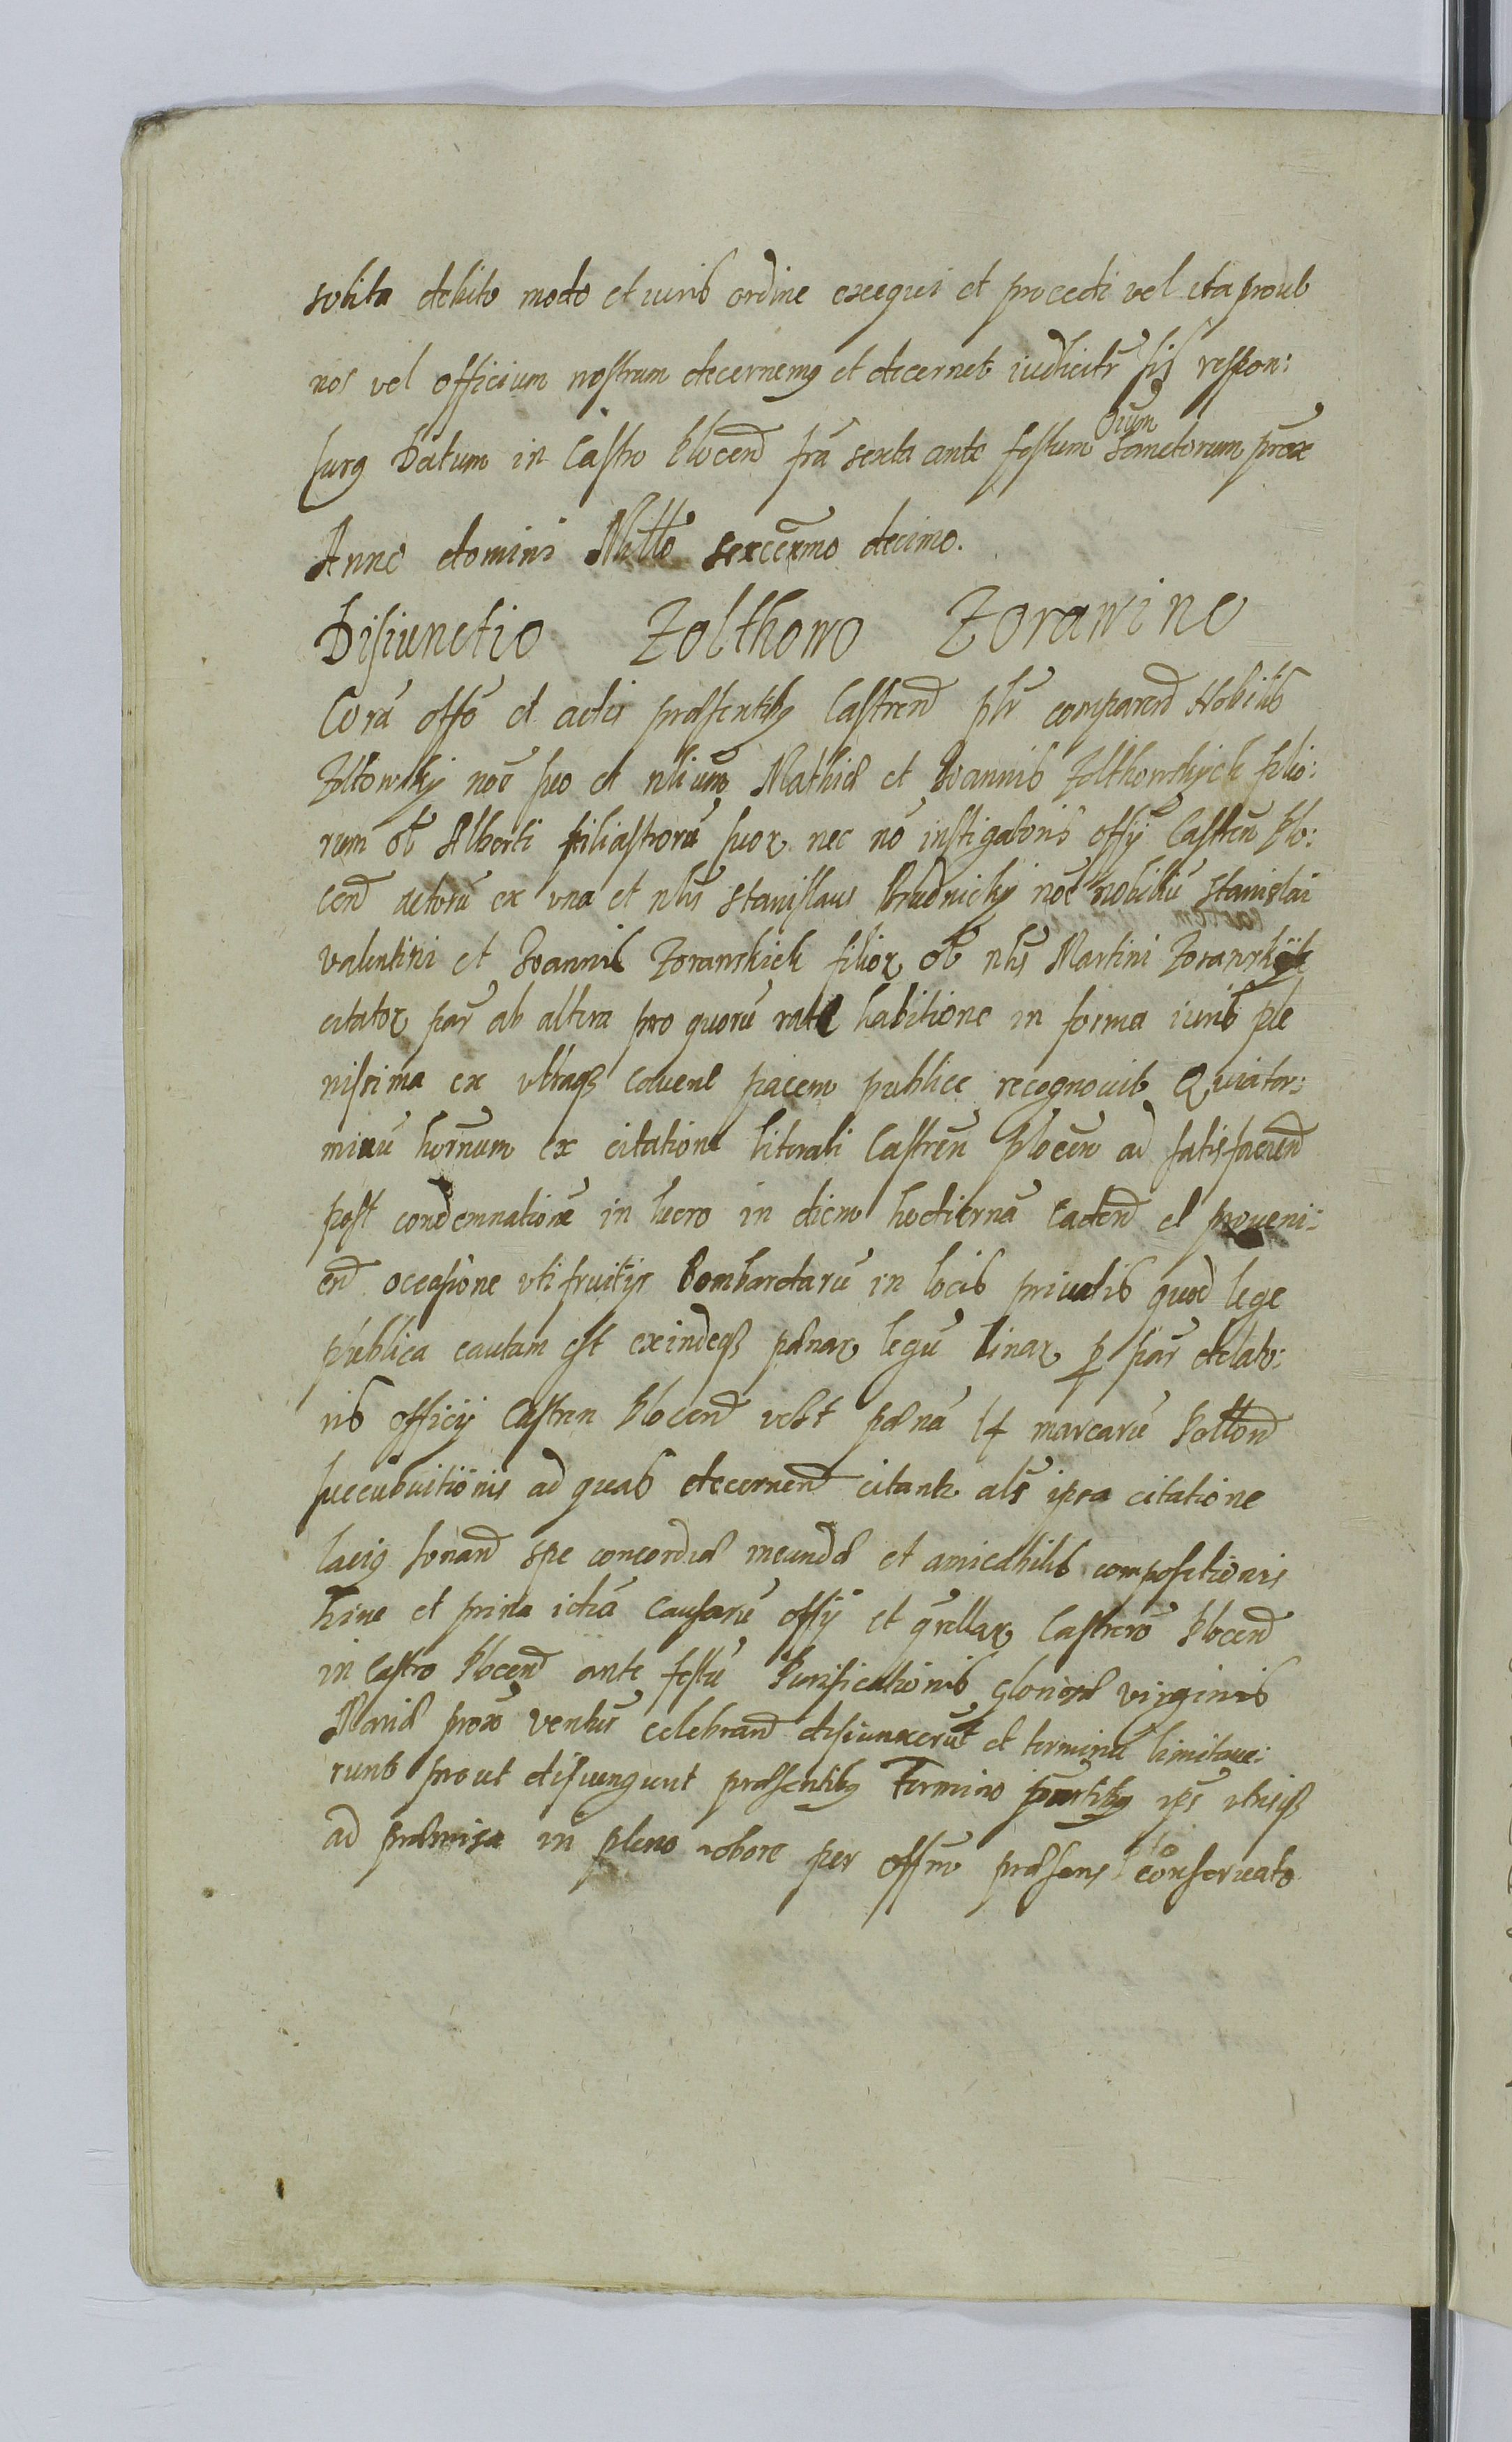 solita debito modo et iuris ordine exequi et procedi vel ita prout
nos vel officium nostrum decernemq et decernet iudicitr sis respon:
surq Datum in Castro Plocen fra sexta ante festum Oium Sanctorum prox
Anno domini Millo sexcexmo decimo.
Disiunctio Zolthowo Zorawino
Cora offo et actis praesentibq Castren plr comparen Nobilis
Zoltowsky noe suo et nlium Mathiae et Joannis Zolthowskych filio:
rum ol Alberti filiastroru suor nec no instigatoris offy Castren Plo:
cen actoru ex vna et nlis Stanislaus Brudnicky noe nobiliu Stanislai
Valentini et Joannis Zorawskich filior ol nlis Martini Zorawskich
citator par ab altera pro quoru rata habitione in forma iuris ple
nissima ex vtraq coven pacem publice recognovit Quia ter:
minu hornum ex citatione literali Castren Plocen ad satisfacien
post condemnatione in lucro in diem hodierna caden et proveni:
en occasione vti fruitys bombardaru in locis privatis quod lege
publica cautum est exindeq paenar legu binar p par delato:
ris officij Castren Plocen velt paena 14 marcaru Pollon
succubuitionis ad quas decernen citantr als ipsa citatione
laciq sonan spe concordiae ineundae et amicabilis compositionis
hinc et prina icta causaru offy et qrellar Castren Plocen
in Castro Plocen ante festu Purificationis gloriosae virginis
Mariae prox ventur celebran disiunxerut et terminu limitave:
runt prout disiungunt praesentibq Termino partibq ips vtrisq
ad praemissa in pleno robore per offm praesens conservato